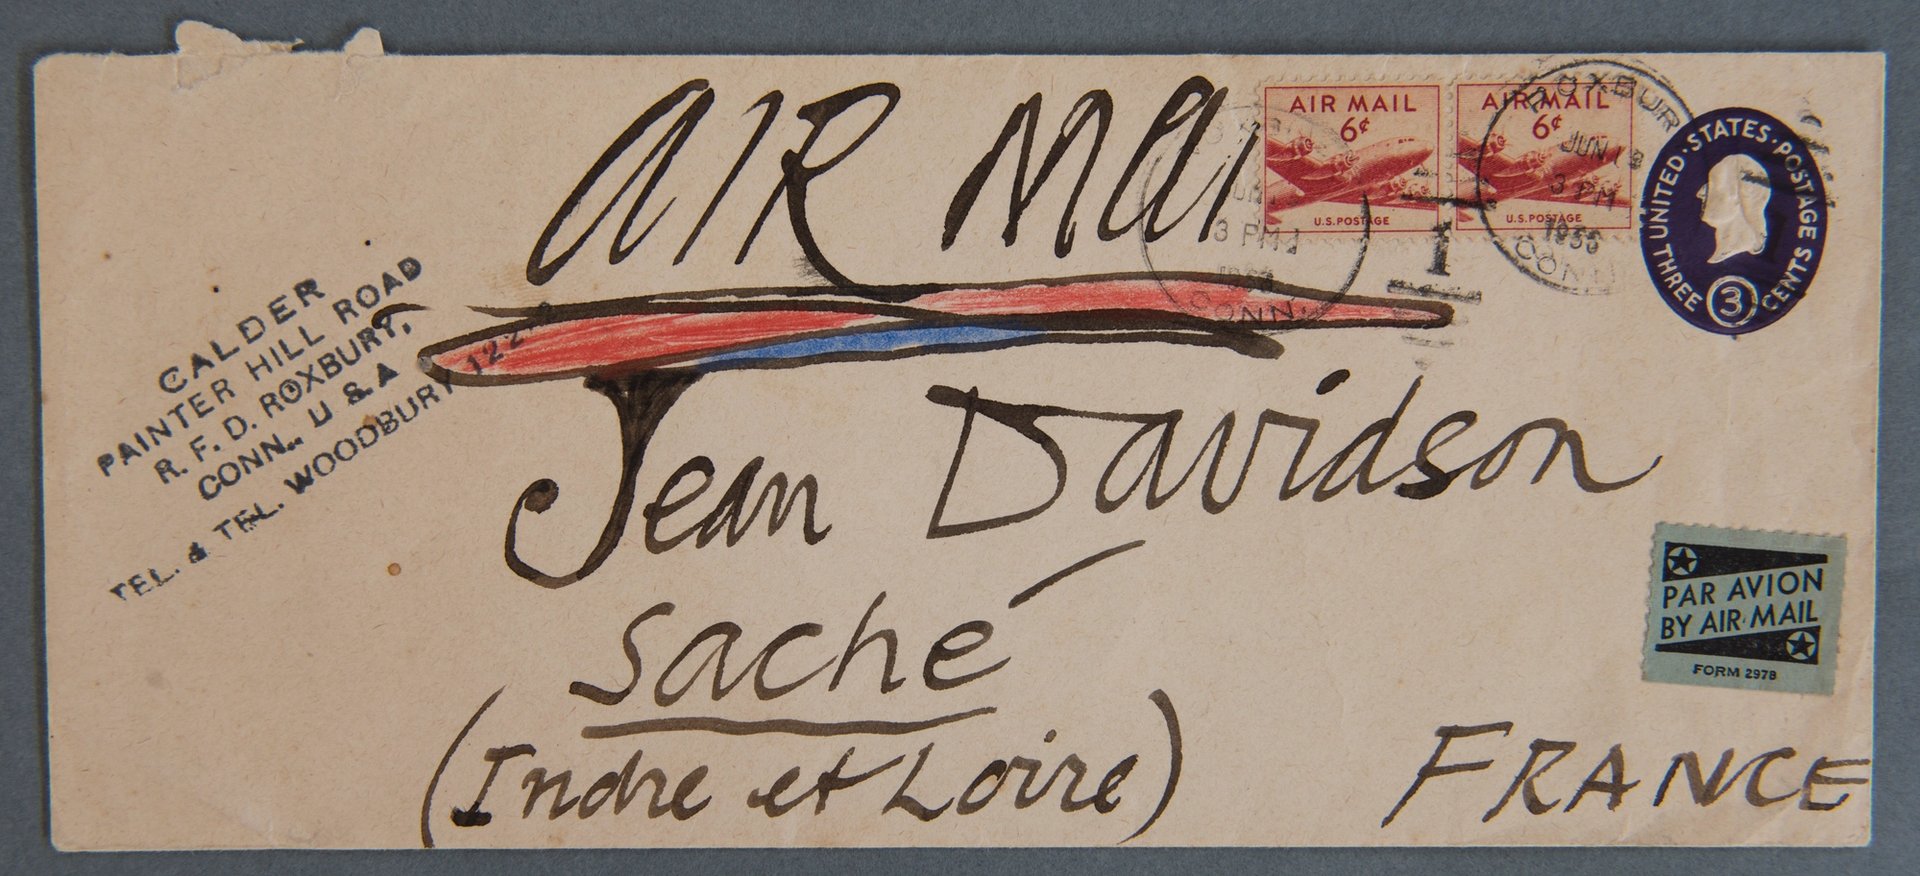 CALDER
PAINTER HILL ROAD
R. F. D. ROXBURY,
CONN., U S A
TEL. & TEL. WOODBURY 122-2
AIR MAI
AIR MAIL
6¢
U.S. POSTAGE
AIR MAIL
6¢
U.S. POSTAGE
3 PM
CONN.
ROXBUR
JUN
3 PM
CONN
1
UNITED·STATES·POSTAGE
THREE 3 CENTS
Jean Davidson
Saché
(Indre et Loire)
FRANCE
PAR AVION
BY AIR MAIL
FORM 2978